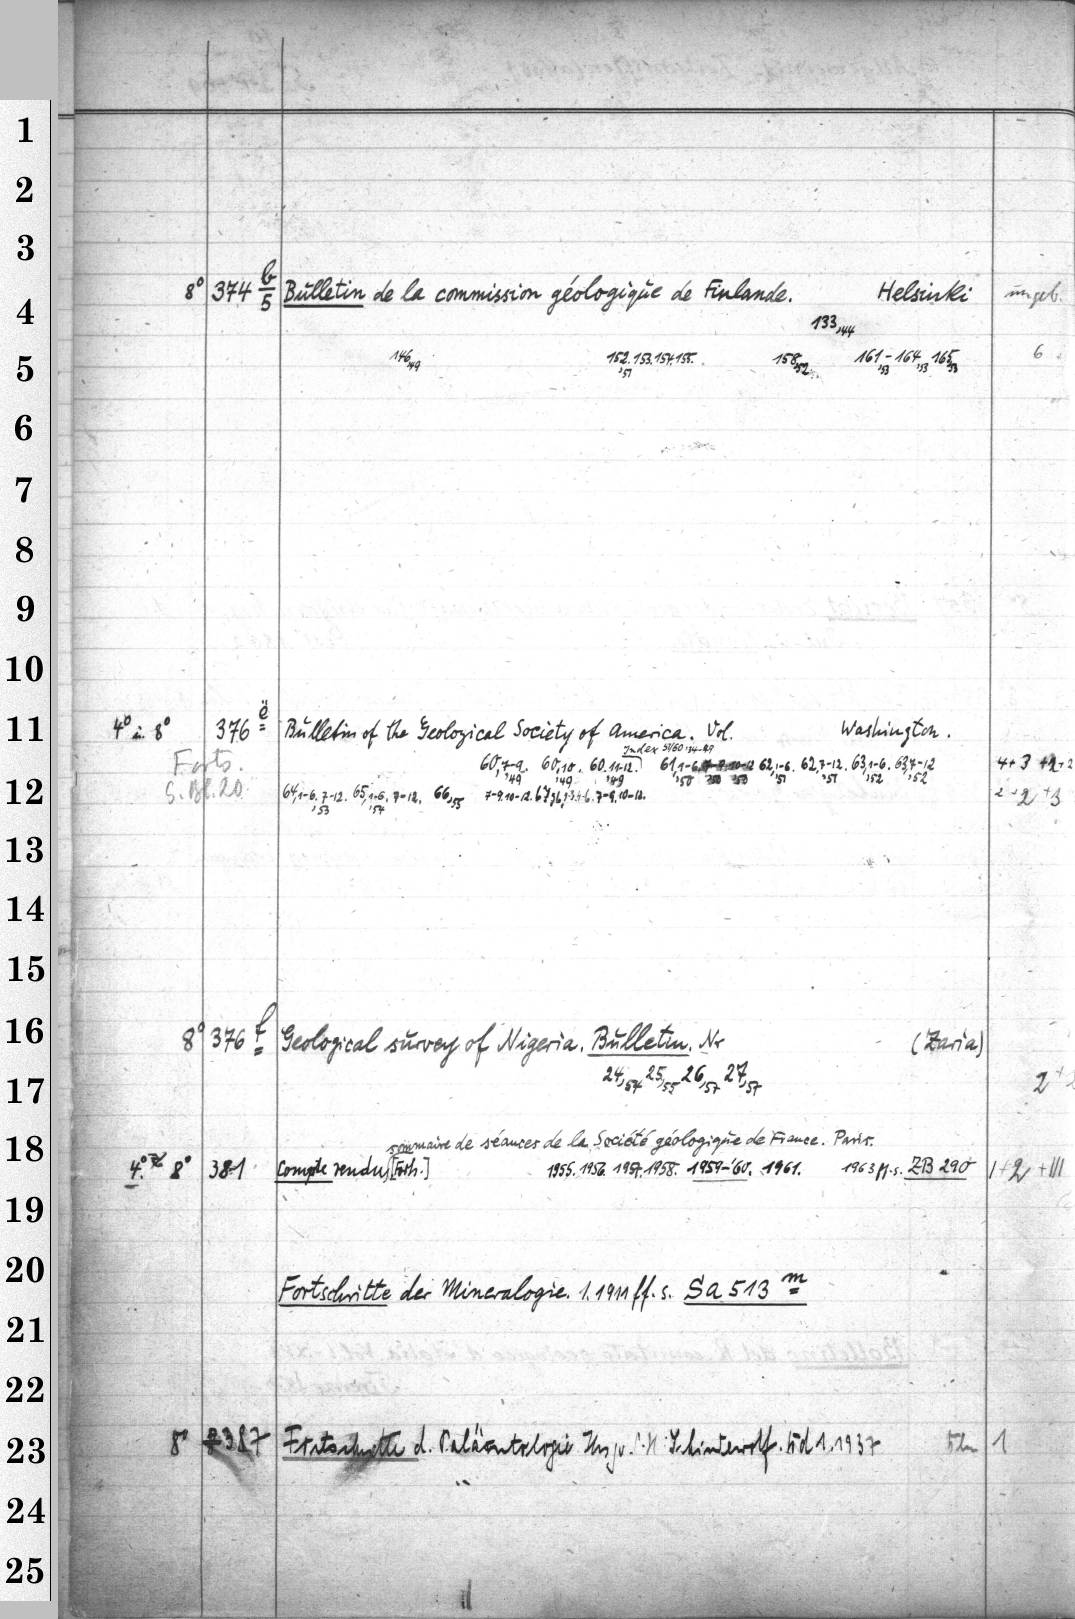 1
2
3
8° 374 b/5 Bulletin de la commission géologique de Finlande. Helsinki ungeb.
4
133,44
5 146,49 152. 153. 154. 155. ,51 158,52 161-164,53 165,53 6
6
7
8
9
10
11 4° u. 8° 376 ë Bulletin of the Geological Society of America. Vol. Washington.
Index 51/60 '34-49
Forts. 60,7-9. ,49 60,10. ,49 60.11-12. ,49 61,1-6 ,50 62,1-6. ,51 62,7-12. ,51 63,1-6. ,52 63,7-12 ,52 4+3 +2+2
12 S. Bl. 20 64,1-6. 7-12. ,53 65,1-6. 7-12. ,54 66,55 7-9.10-12. 67, 7-9.10-12. 2+2+3
13
14
15
16 8° 376 f Geological survey of Nigeria. Bulletin. Nr (Zaria)
17 24,54 25,55 26,57 27,57 2+2
18 sommaire de séances de la Société géologique de France. Paris.
4° 8° 381 Compte rendus [Forts.] 1955. 1956. 1957. 1958. 1959-'60. 1961. 1963 ff. s. ZB 290 1+2+III
19
20 Fortschritte der Mineralogie. 1.1911 ff. s. Sa 513 m
21
22
23 8° 387 Fortschritte d. Paläontologie Hsg. v. O. H. Schindewolf. Bd 1. 1937 1
24
25